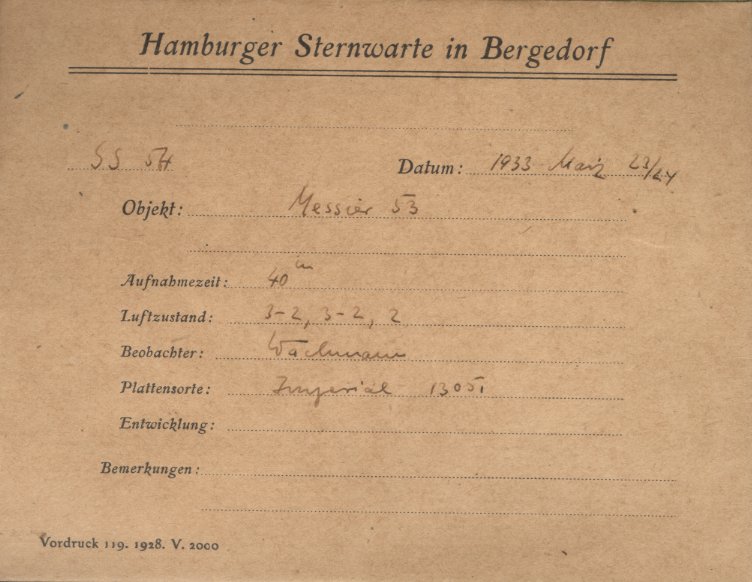 Hamburger Sternwarte in Bergedorf
SS 54 Datum: 1933 März 23/24
Objekt: Messier 53
Aufnahmezeit: 40 m
Luftzustand: 3-2, 3-2, 2
Beobachter: Wachmann
Plattensorte: Imperial 1305
Entwicklung:
Bemerkungen:
Vordruck 119. 1928. V. 2000